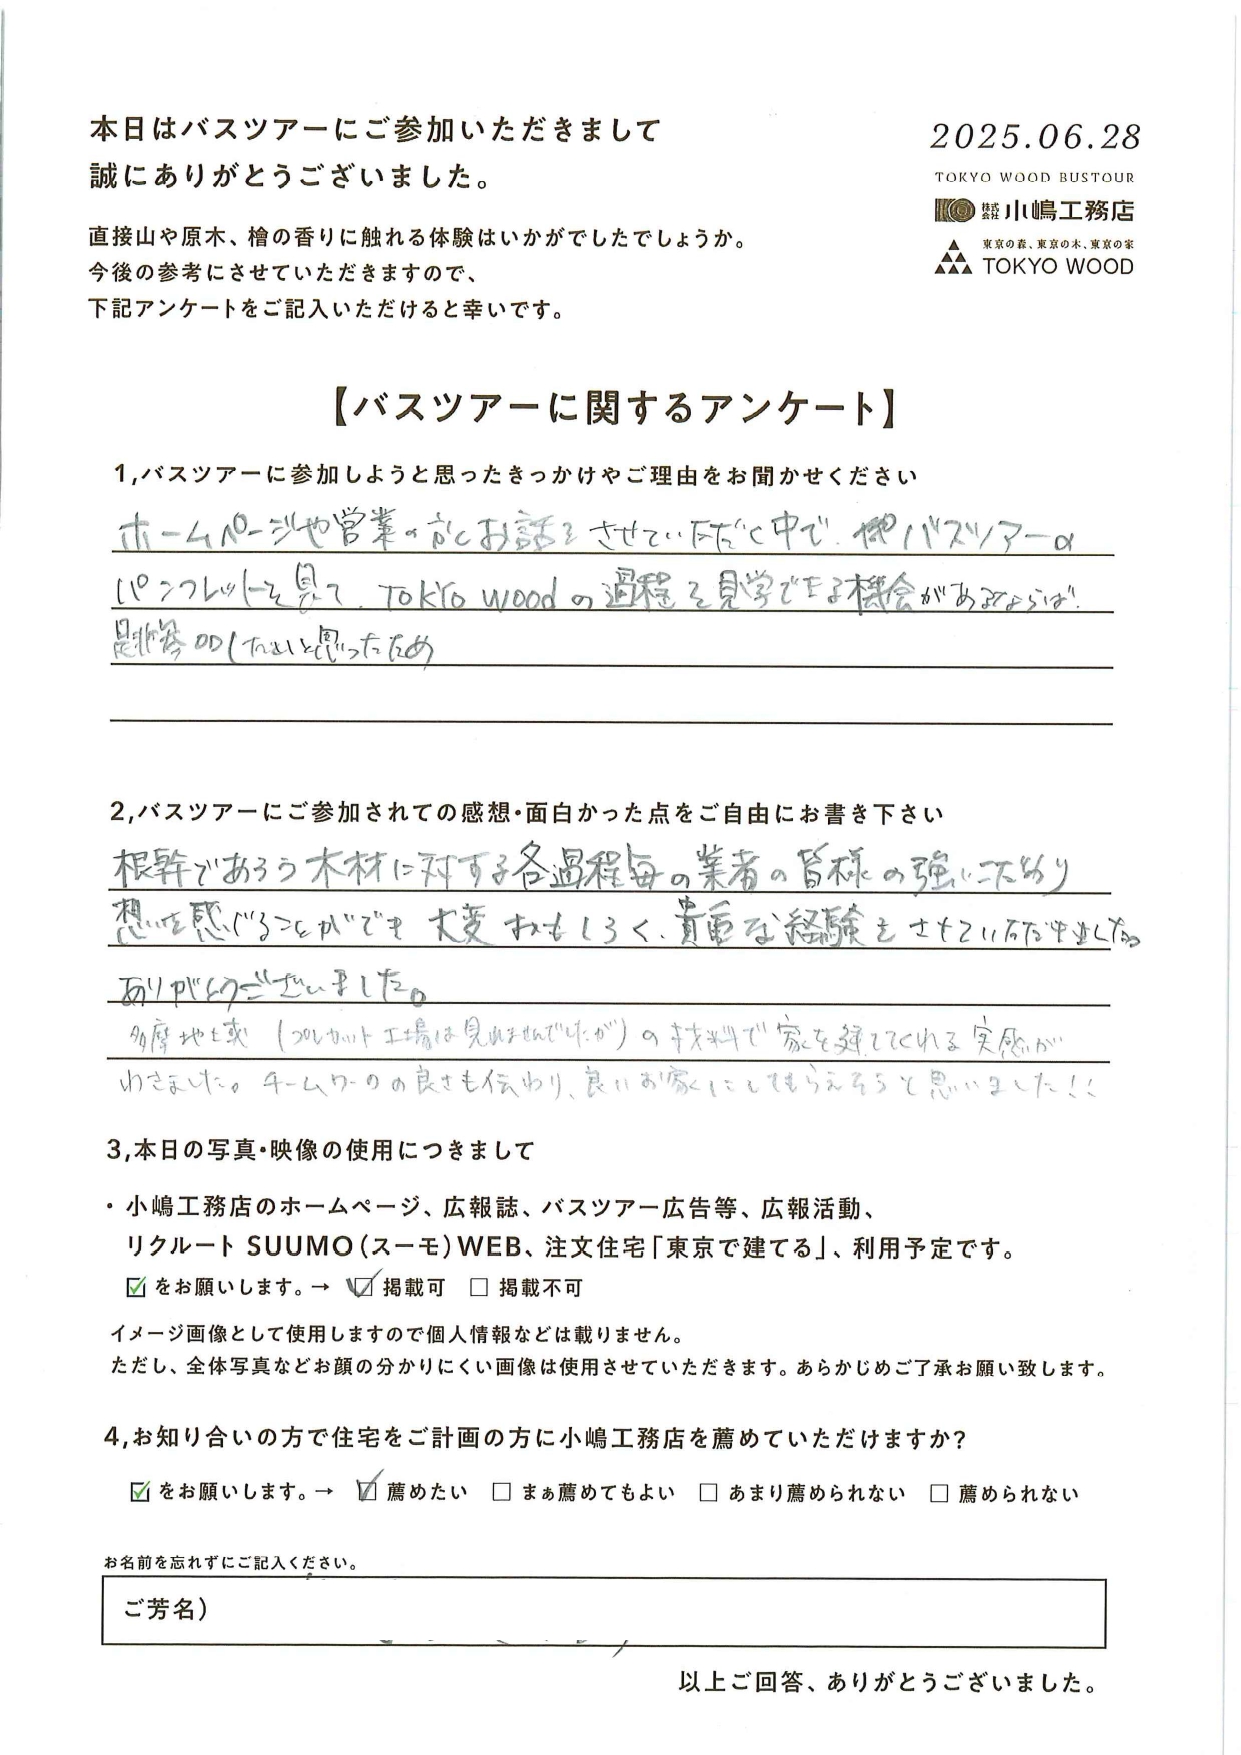 本日はバスツアーにご参加いただきまして
誠にありがとうございました。
2025.06.28
TOKYO WOOD BUSTOUR
株式会社 小嶋工務店
東京の森、東京の木、東京の家
TOKYO WOOD
直接山や原木、檜の香りに触れる体験はいかがでしたでしょうか。
今後の参考にさせていただきますので、
下記アンケートをご記入いただけると幸いです。
【バスツアーに関するアンケート】
1,バスツアーに参加しようと思ったきっかけやご理由をお聞かせください
ホームページや営業の方とお話をさせていただく中で バスツアーの
パンフレットを見て、TOKYO WOODの過程を見学できる機会があるならば
是非参加したいと思ったため
2,バスツアーにご参加されての感想・面白かった点をご自由にお書き下さい
根幹であろう木材に対する各過程毎の業者の皆様の強いこだわり
想いを感じることができ 大変おもしろく、貴重な経験をさせていただきました。
ありがとうございました。
多摩地域(プレカット工場は見れませんでしたが)の材料で家を建ててくれる実感が
わきました。チームワークの良さも伝わり、良いお家にしてもらえそうと思いました!!
3,本日の写真・映像の使用につきまして
・小嶋工務店のホームページ、広報誌、バスツアー広告等、広報活動、
リクルート SUUMO(スーモ)WEB、注文住宅「東京で建てる」、利用予定です。
☑をお願いします。→ ☑掲載可 □掲載不可
イメージ画像として使用しますので個人情報などは載りません。
ただし、全体写真などお顔の分かりにくい画像は使用させていただきます。あらかじめご了承お願い致します。
4,お知り合いの方で住宅をご計画の方に小嶋工務店を薦めていただけますか?
☑をお願いします。→ ☑薦めたい □まぁ薦めてもよい □あまり薦められない □薦められない
お名前を忘れずにご記入ください。
ご芳名)
以上ご回答、ありがとうございました。